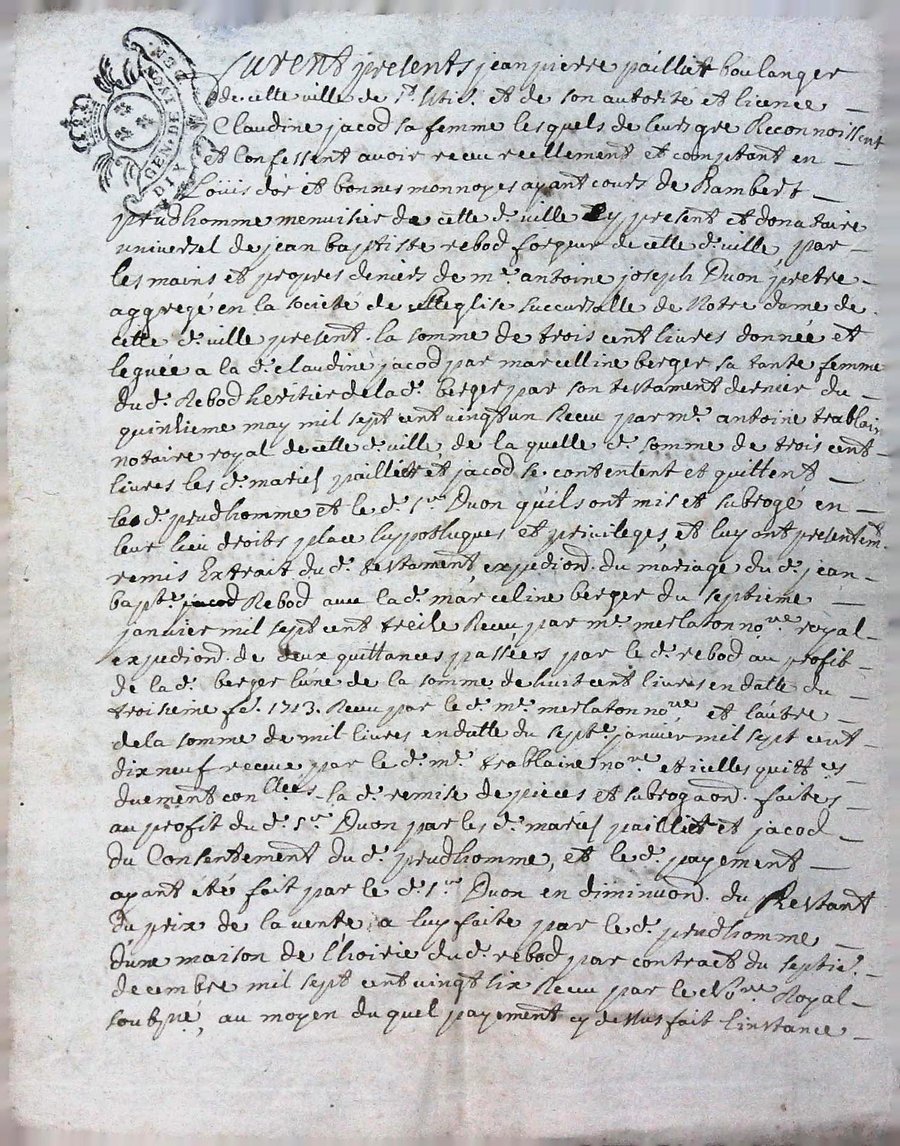 GEN. DE LYON DEN.
DIX
furent presents jean pierre paillet boulanger
de cette ville de st. et de son autorité et licence
Claudine jacod sa femme lesquels de leurs gre Reconnoissent
et Confessent avoir receu reellement et comptant en
Louis d'or et bonnes monnoyes ayant cours de Rambert
prudhomme menuisier de cette d. ville cy present et donataire
universel de jean baptiste rebod forgeur de cette d. ville, par
les mains et propres deniers de me. antoine joseph Duon pretre
aggregé en la societé de leglise succursalle de Notre dame de
cette d. ville present. la somme de trois cent livres donnée et
leguée a la d. claudine jacod par marcelline berger sa tante femme
du d. Rebod heritier de la d. berger par son testament dernier du
quinzieme may mil sept cent vingt un Receu par me. antoine
notaire royal de cette d. ville, de la quelle d. somme de trois cent
livres les d. mariés paillet et jacod se contentent et quittent
le d. prudhomme et le d. sr. Duon qu'ils ont mis et subrogé en
leur lieu droits place hyppotheques et privileges, et luy ont presentemt.
remis Extrait du d. testament, expediond. du mariage du d. jean
bapte. Rebod avec la d. marceline berger du septieme
janvier mil sept cent treize Receu par me. merlaton nore. royal
expediond. de deux quittances passées par le d. rebod au profit
de la d. berger lune de la somme de huit cent livres en datte du
troisieme fev. 1713. Receu par le d. me. merlaton nore. et lautre
de la somme de mil livres en datte du septe. janvier mil sept cent
dix neuf receue par le d. me. trablaine nore. et icelles quittces
duement conllees. la d. remise de pieces et subrogaond. faites
au profit du d. sr. Duon par les d. mariés paillet et jacod
du Consentement du d. prudhomme, et le d. payement
ayant été fait par le d. sr. Duon en diminuond. du Restant
du prix de la vente a luy faite par le d. prudhomme
d'une maison de l'hoirie du d. rebod par contract du septie.
decembre mil sept cent vingt six Receu par le Nore. Royal
soubne, au moyen du quel payement cy dessus fait linstance